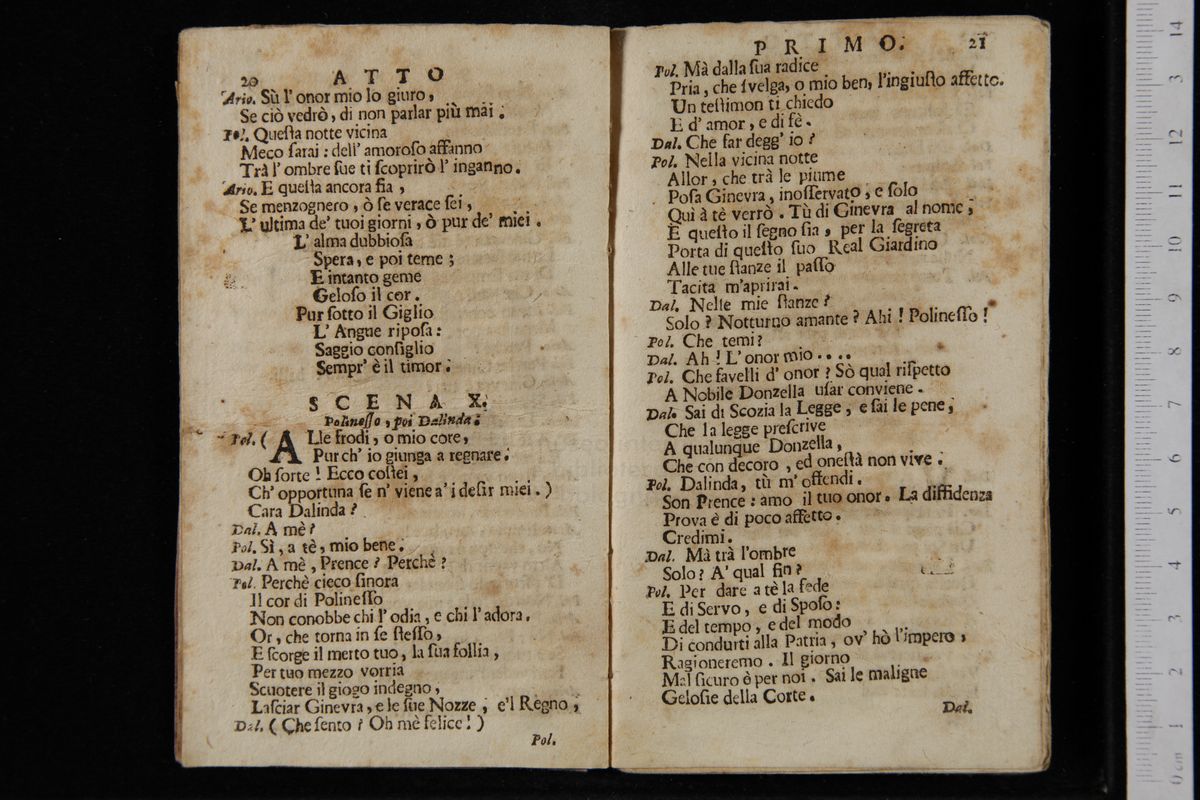 20 ATTO
Ario. Sù l' onor mio lo giuro,
Se ciò vedrò, di non parlar più mai.
Pol. Questa notte vicina
Meco sarai: dell' amoroso affanno
Trà l' ombre sue ti scoprirò l' inganno.
Ario. E questa ancora fia,
Se menzognero, ò se verace sei,
L' ultima de' tuoi giorni, ò pur de' miei.
L' alma dubbiosa
Spera, e poi teme;
E intanto geme
Geloso il cor.
Pur sotto il Giglio
L' Angue riposa:
Saggio consiglio
Sempr' è il timor.
SCENA X.
Polinesso, poi Dalinda.
Pol. ( ALle frodi, o mio core,
Pur ch' io giunga a regnare.
Oh sorte! Ecco costei,
Ch' opportuna se n' viene a' i desir miei.)
Cara Dalinda?
Dal. A mè?
Pol. Sì, a tè, mio bene.
Dal. A mè, Prence? Perchè?
Pol. Perchè cieco sinora
Il cor di Polinesso
Non conobbe chi l' odia, e chi l' adora.
Or, che torna in se stesso,
E scorge il merto tuo, la sua follia,
Per tuo mezzo vorria
Scuotere il giogo indegno,
Lasciar Ginevra, e le sue Nozze, e'l Regno;
Dal. ( Che sento? Oh mè felice!)
Pol.
PRIMO. 21
Pol. Mà dalla sua radice
Pria, che svelga, o mio ben, l'ingiusto affetto.
Un testimon ti chiedo
E d' amor, e di fè.
Dal. Che far degg' io?
Pol. Nella vicina notte
Allor, che trà le piume
Posa Ginevra, inosservato, e solo
Quì à tè verrò. Tù di Ginevra al nome;
E questo il segno sia, per la segreta
Porta di questo suo Real Giardino
Alle tue stanze il passo
Tacita m'aprirai.
Dal. Nelle mie stanze?
Solo? Notturno amante? Ahi! Polinesso!
Pol. Che temi?
Dal. Ah! L' onor mio....
Pol. Che favelli d' onor? Sò qual rispetto
A Nobile Donzella usar conviene.
Dal. Sai di Scozia la Legge, e sai le pene,
Che la legge prescrive
A qualunque Donzella,
Che con decoro, ed onestà non vive.
Pol. Dalinda, tù m' offendi.
Son Prence: amo il tuo onor. La diffidenza
Prova è di poco affetto.
Credimi.
Dal. Mà trà l'ombre
Solo? A' qual fin?
Pol. Per dare a tè la fede
E di Servo, e di Sposo:
E del tempo, e del modo
Di condurti alla Patria, ov' hò l'impero,
Ragioneremo. Il giorno
Mal sicuro è per noi. Sai le maligne
Gelosie della Corte.
Dal.
0 cm 1 2 3 4 5 6 7 8 9 10 11 12 3 14